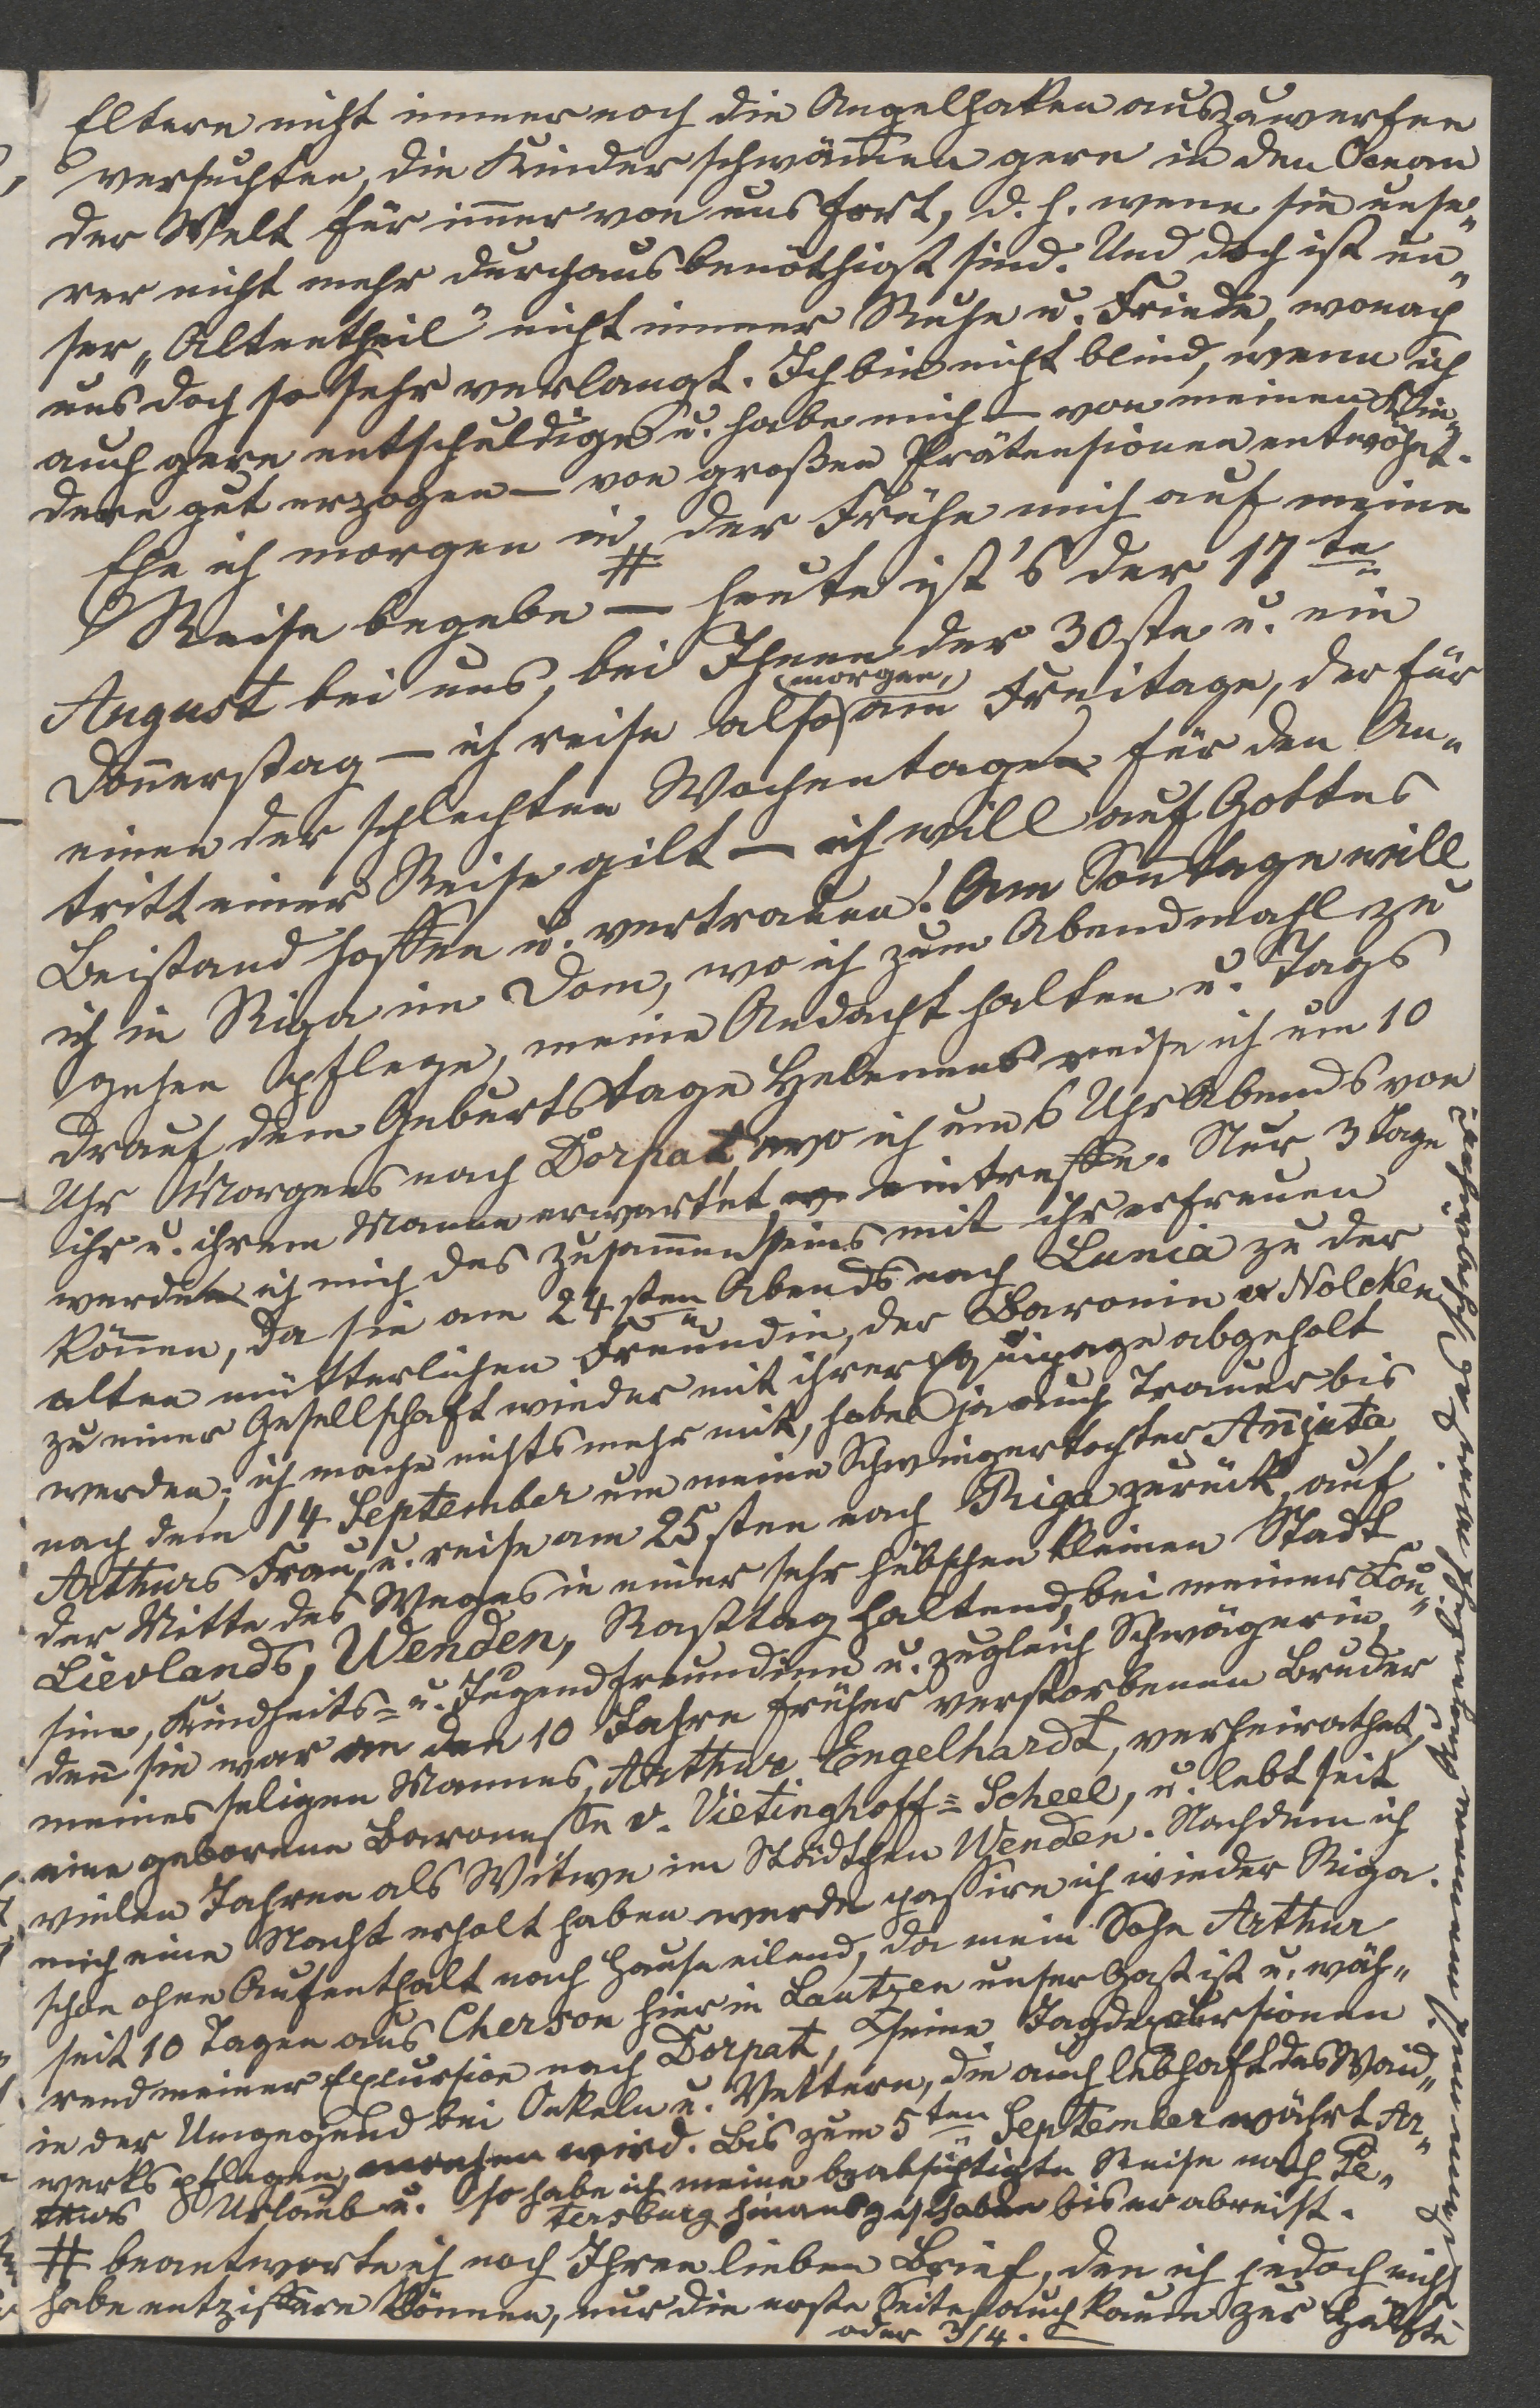 Eltern nicht immer noch die Angelhaken auszuwerfen
versuchten, die Kinder schwämmen gern in den Ocean
der Welt für immer von uns fort, d. h. wenn sie unse„
rer nicht mehr durchaus benöthigt sind. Und doch ist un„
ser „Altentheil" nicht immer Ruhe u. Friede, wonach
uns doch so sehr verlangt. Ich bin nicht blind, wenn ich
auch gern entschuldige u. habe mich — von meinen Kin„
dern gut erzogen — von großen Prätensionen entwöhnt.
Ehe ich morgen in # der Frühe mich auf meine
Reise begebe — heute ist's der 17te
August bei uns, bei Ihnen der 30ste u. ein
Donnerstag — ich reise also morgen, am Freitage, der für
einen der schlechten Wochentage für den An„
tritt einer Reise gilt — ich will auf Gottes
Beistand hoffen u. vertrauen! Am Sontage will
ich in Riga im Dom, wo ich zum Abendmahl zu
gehen pflege, meine Andacht halten u. Tags
drauf, dem Geburtstage Helenens reise ich um 10
Uhr Morgens nach Dorpat, wo ich um 6 Uhr Abends von
ihr u. ihrem Manne erwartet eintreffe. Nur 3 Tage
werde ich mich des Zusammenseins mit ihr erfreuen
können, da sie am 24sten Abends nach Lunia zu der
alten mütterlichen Freundin, der Baronin v Nolcken
zu einer Gesellschaft wieder mit ihrer Equipage abgeholt
werden; ich mache nichts mehr mit, habe ja auch Trauer bis
nach dem 14 September um meine Schwiegertochter Anjuta
Arthurs Frau, u. reise am 25sten nach Riga zurück, auf
der Mitte des Weges in einer sehr hübschen kleinen Stadt
Lievlands, Wenden, Rasttag haltend, bei meiner Cou„
sine, Kindheits= u. Jugendfreundinn u. zugleich Schwägerin,
denn sie war an den 10 Jahre früher verstorbenen Bruder
meines seligen Mannes, Arthur Engelhardt, verheirathet,
eine geborene Baronesse v. Vietinghoff=Scheel, u. lebt seit
vielen Jahren als Witwe im Städtchen Wenden. Nachdem ich
mich eine Nacht erholt haben werde passire ich wieder Riga.
schon ohne Aufenthalt nach Hause eilend, da mein Sohn Arthur
seit 10 Tagen aus Cherson hier in Lautzen unser Gast ist u. wäh„
rend meiner Excursion nach Dorpat, seine Jagdexcursionen
in der Umgegend bei Onkeln u. Vettern, die auch lebhaft das Waid„
werk pflegen, machen wird. Bis zum 5ten September währt Ar„
thurs Urlaub u. so habe ich meine beabsichtigte Reise nach Pe„
tersburg hinausgeschoben bis er abreist.
# beantworte ich noch Ihren lieben Brief, den ich jedoch nicht
habe entziffern können, nur die erste Seite auch kaum zur Hälfte
oder 3/4.